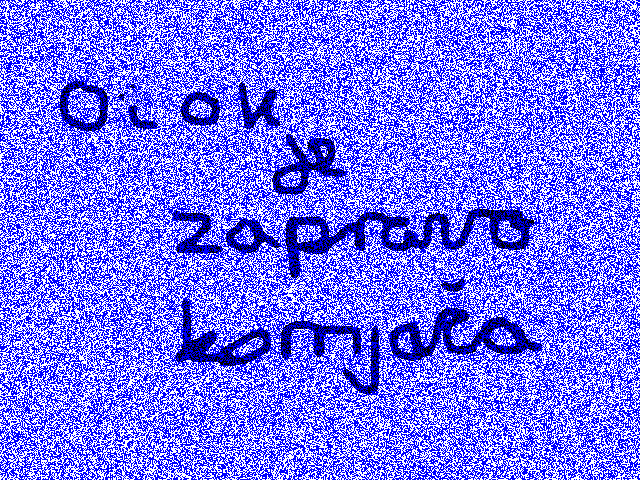 Otok
je
zapravo
kornjača